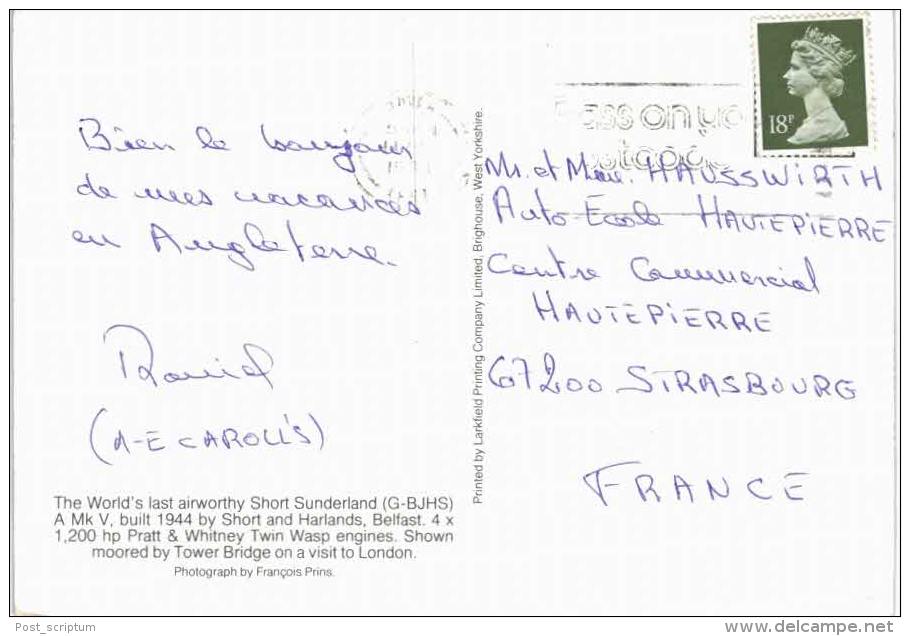 Bien le bonjour
de mes vacances
en Angleterre.
Daniel
(A-E CAROLL'S)
The World's last airworthy Short Sunderland (G-BJHS)
A Mk V, built 1944 by Short and Harlands, Belfast. 4 x
1,200 hp Pratt & Whitney Twin Wasp engines. Shown
moored by Tower Bridge on a visit to London.
Photograph by François Prins.
Printed by Larkfield Printing Company Limited, Brighouse, West Yorkshire.
18P
Pass on yo
Mr. et Mme. HAUSSWIRTH
Auto Ecole HAUTEPIERRE
Centre Commercial
HAUTEPIERRE
67200 STRASBOURG
FRANCE
Post_scriptum
delcampe.net